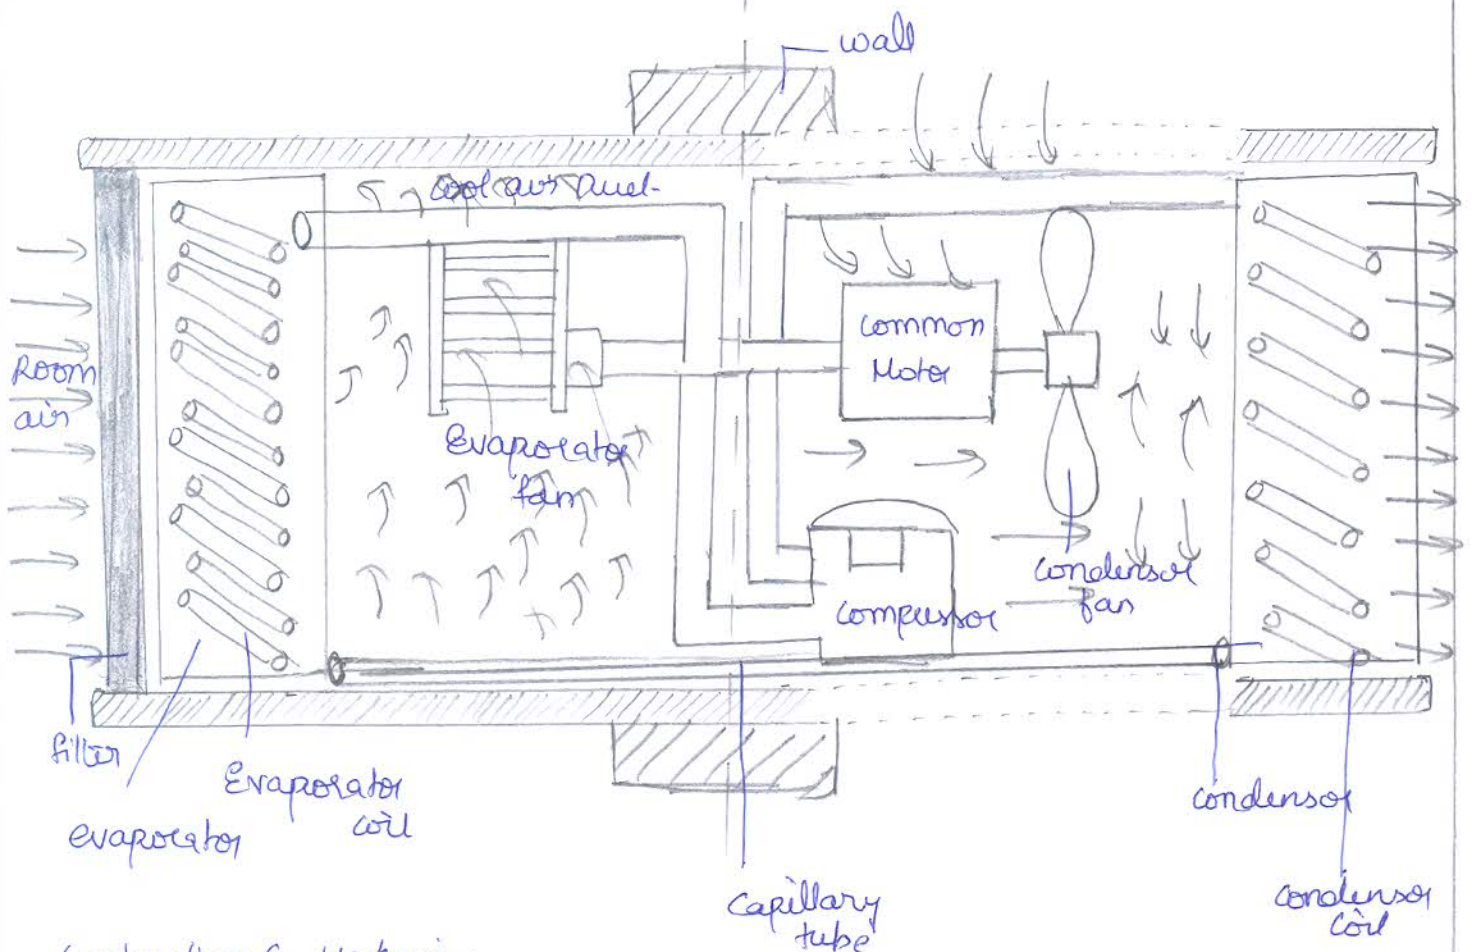 wall
cool air duct
Room
air
common
Motor
Evaporator
fan
condensor
fan
compressor
filter
Evaporator
coil
evaporator
condensor
capillary
tube
condensor
coil